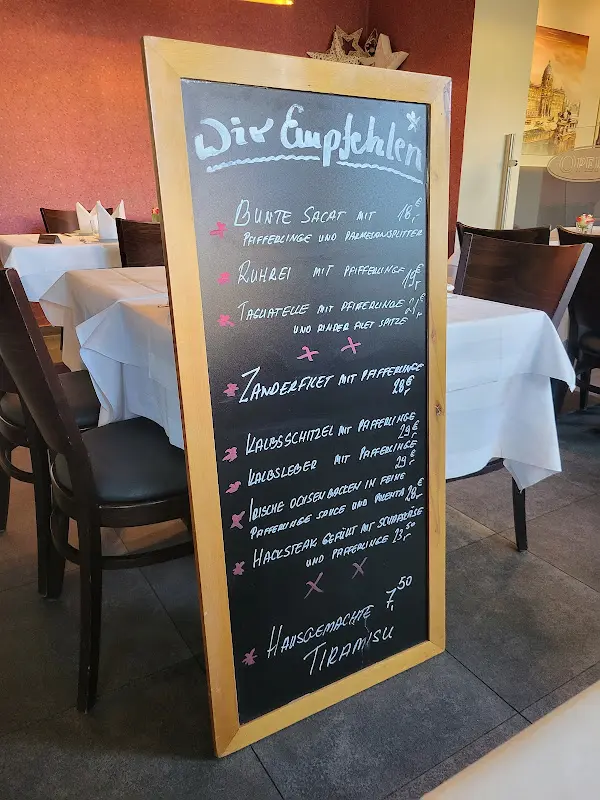 Wir Empfehlen
BUNTE SALAT MIT 18,€
PFIFFERLINGE UND PARMESANSPLITTER
RÜHREI MIT PFIFFERLINGE 19,€
TAGLIATELLE MIT PFIFFERLINGE 21,€
UND RINDER FILET SPITZE
X X
ZANDERFILET MIT PFIFFERLINGE
28,€
KALBSSCHITZEL MIT PFIFFERLINGE
29,€
KALBSLEBER MIT PFIFFERLINGE
29,€
IRISCHE OCHSENBACKEN IN FEINE
PFIFFERLINGE SAUCE UND POLENTA 28,€
HACKSTEAK GEFÜLLT MIT SCHAFSKÄSE
UND PFIFFERLINGE 23,50
X X
7,50
HAUSGEMACHTE
TIRAMISU